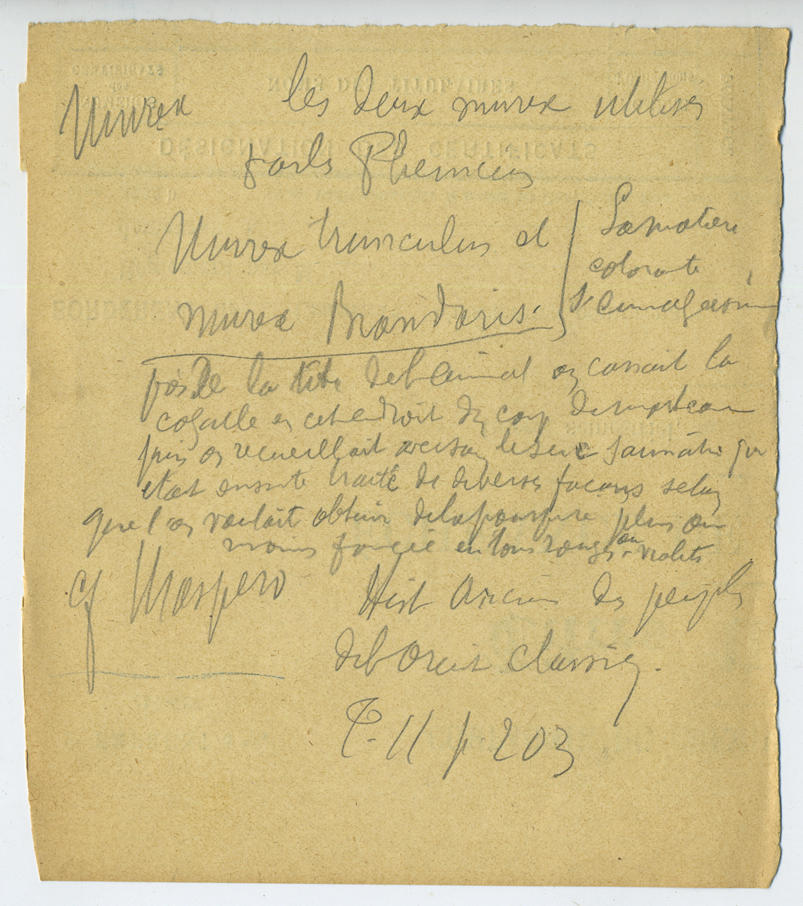 Murex les deux murex utilisés
par les Pheniciens
Murex trunculus et
murex Brandaris.
La matière
colorante
s'emmagasine
près de la tête de l'animal on cassait la
coquille en cet endroit d'un coup de marteau
puis on recueillait avec soin le suc jaunâtre qui
était ensuite traité de diverses façons selon
que l'on voulait obtenir de la pourpre plus ou
moins foncée en tons rouges ou violets
cf Maspero Hist Ancienne des peuples
de l'Orient classiq.
T. II p. 203